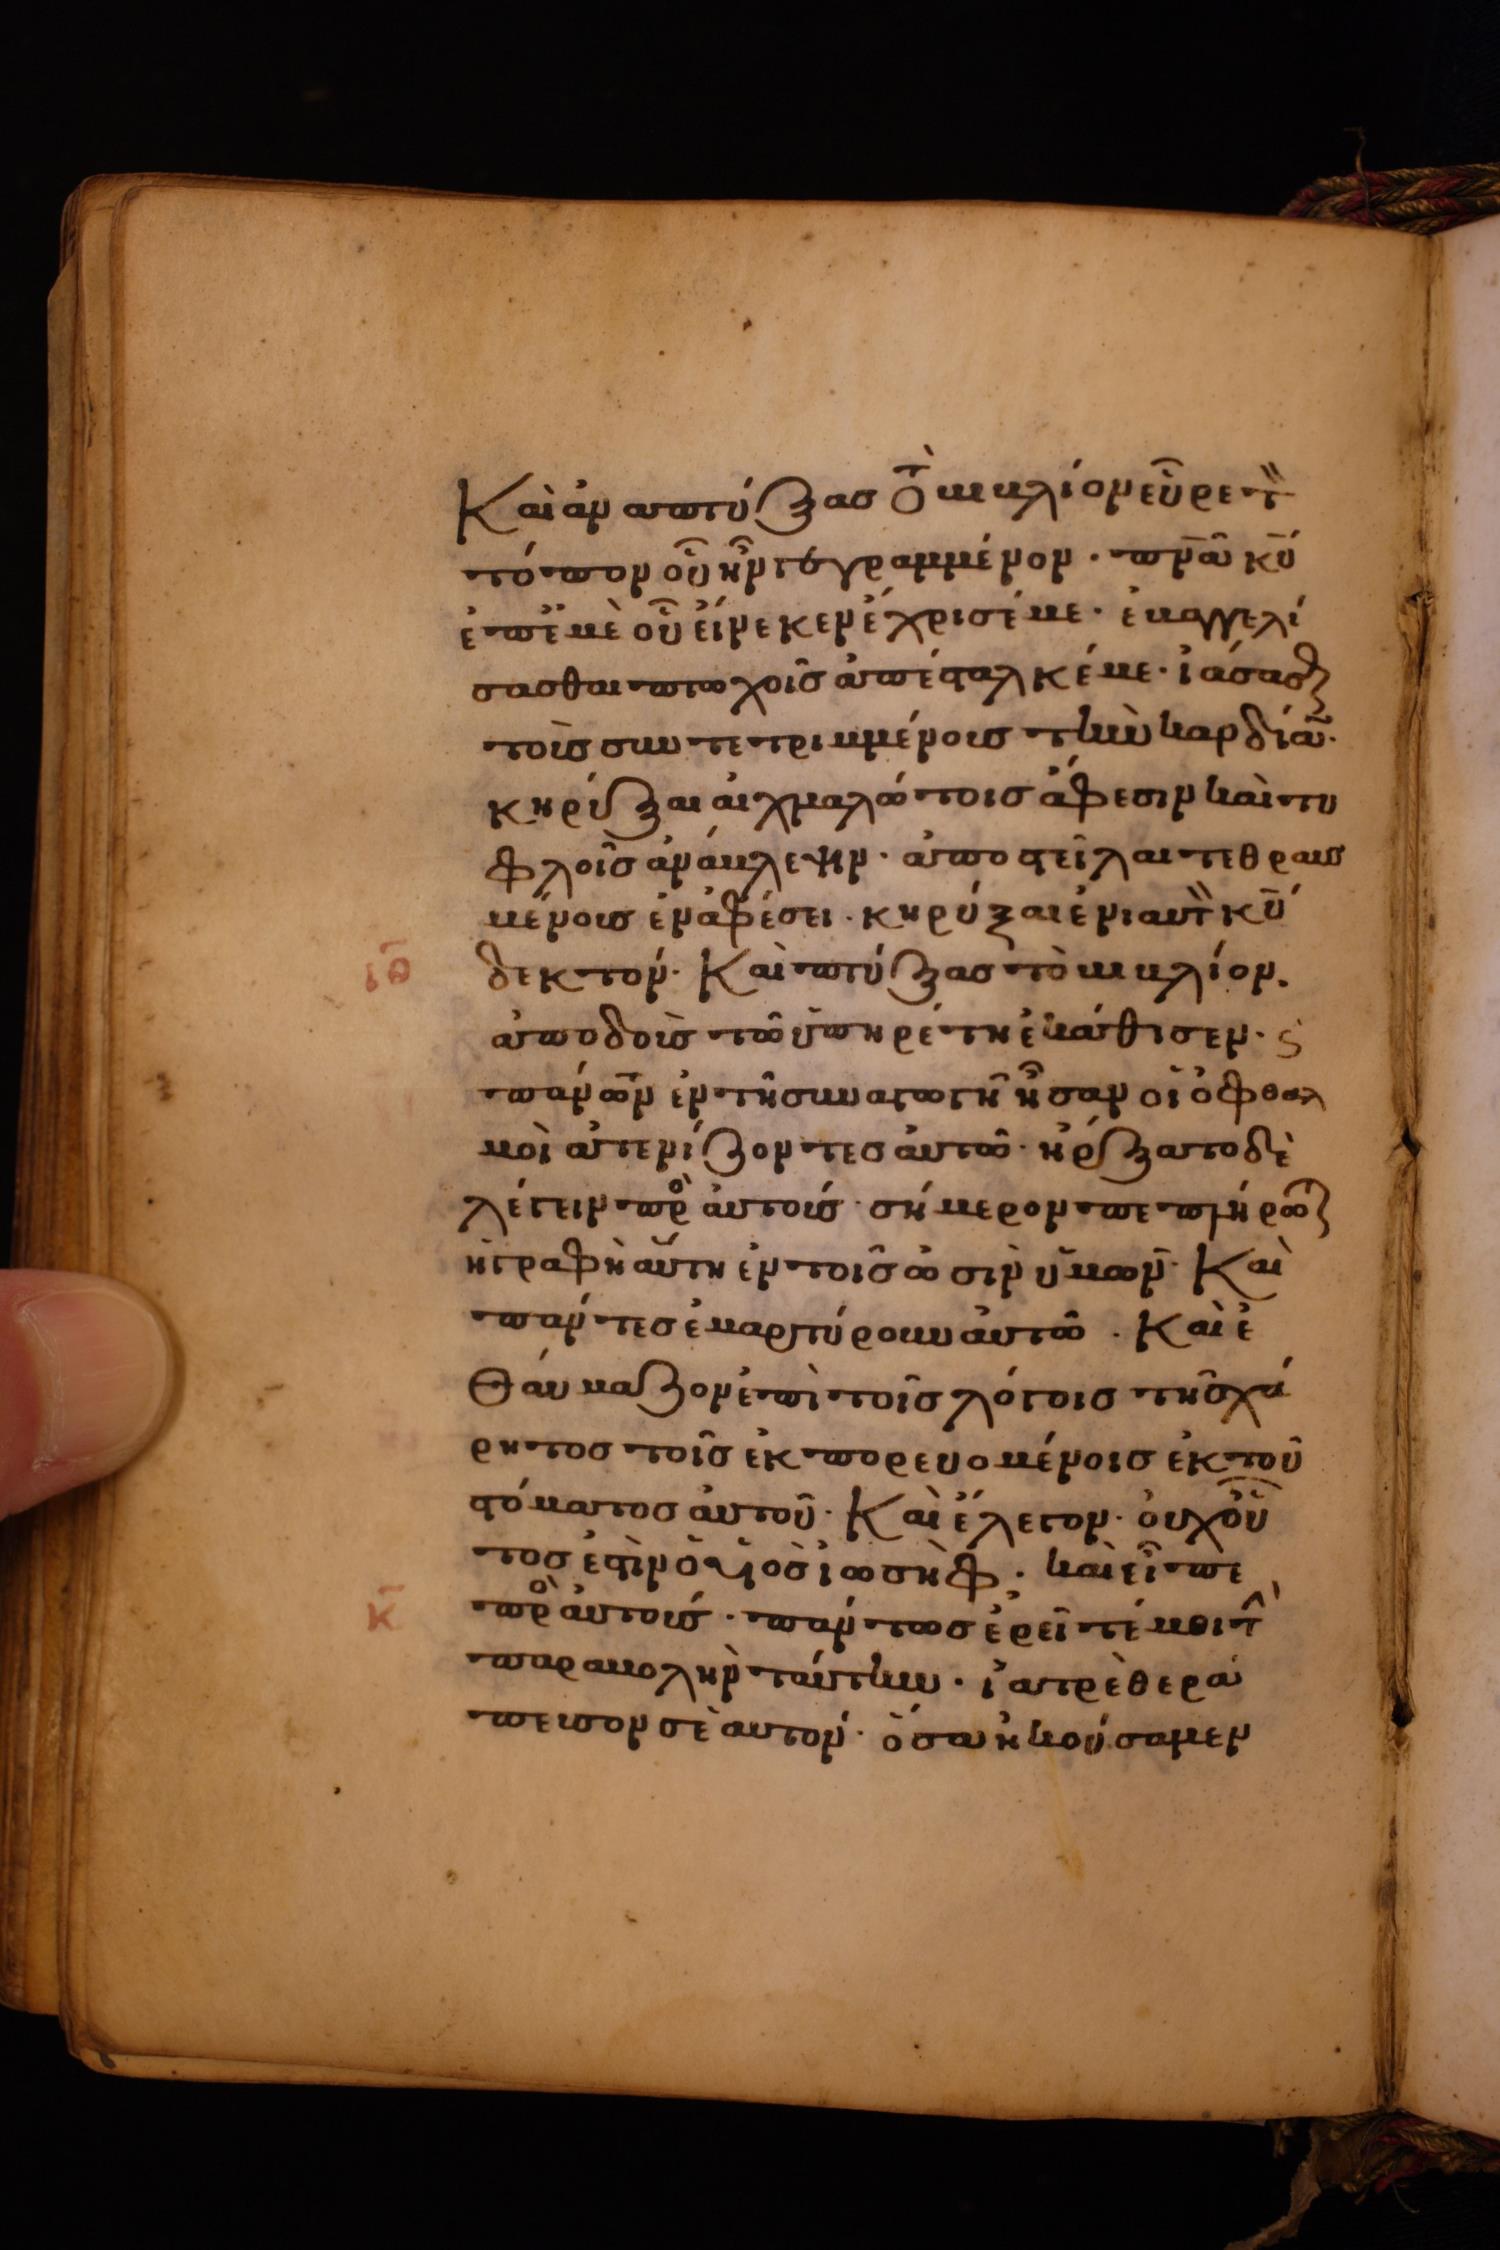 Καὶ ἀναπτύξας τὸ βιβλίον εὗρε τὸν
τόπον οὗ ἦν γεγραμμένον · πνᾶ κυ̅
ἐπ' ἐμὲ οὗ εἵνεκεν ἔχρισέ με · εὐαγγελί
σασθαι πτωχοῖς ἀπέσταλκέ με · ἰάσασθαι
τοὺς συντετριμμένους τὴν καρδίαν ·
κηρύξαι αἰχμαλώτοις ἄφεσιν καὶ τυ
φλοῖς ἀνάβλεψιν · ἀποστεῖλαι τεθραυσ
μένους ἐν ἀφέσει · κηρύξαι ἐνιαυτὸν κυ̅
ιθ̅ δεκτόν · Καὶ πτύξας τὸ βιβλίον ·
ἀποδοὺς τῶ ὑπηρέτη ἐκάθισεν · ϛ
πάντων ἐν τῆ συναγωγῆ ἦσαν οἱ ὀφθαλ
μοὶ ἀτενίζοντες αὐτῶ · ἤρξατο δὲ
λέγειν πρὸς αὐτούς · σήμερον πεπλήρωται
ἡ γραφὴ αὕτη ἐν τοῖς ὠσὶν ὑμῶν · Καὶ
πάντες ἐμαρτύρουν αὐτῶ · Καὶ ἐ
θαύμαζον ἐπὶ τοῖς λόγοις τῆς χά
ρητος τοῖς ἐκπορευομένοις ἐκ τοῦ
στόματος αὐτοῦ · Καὶ ἔλεγον · οὐχ οὗ
τος ἐστὶν ὁ υἱὸς ἰωσὴφ · καὶ εἶπε
κ̅ πρὸς αὐτούς · πάντως ἐρεῖτέ μοι τὴν
παραβολὴν ταύτην · ἰατρὲ θερά
πευσον σὲ αυτόν · ὅσα ἠκούσαμεν